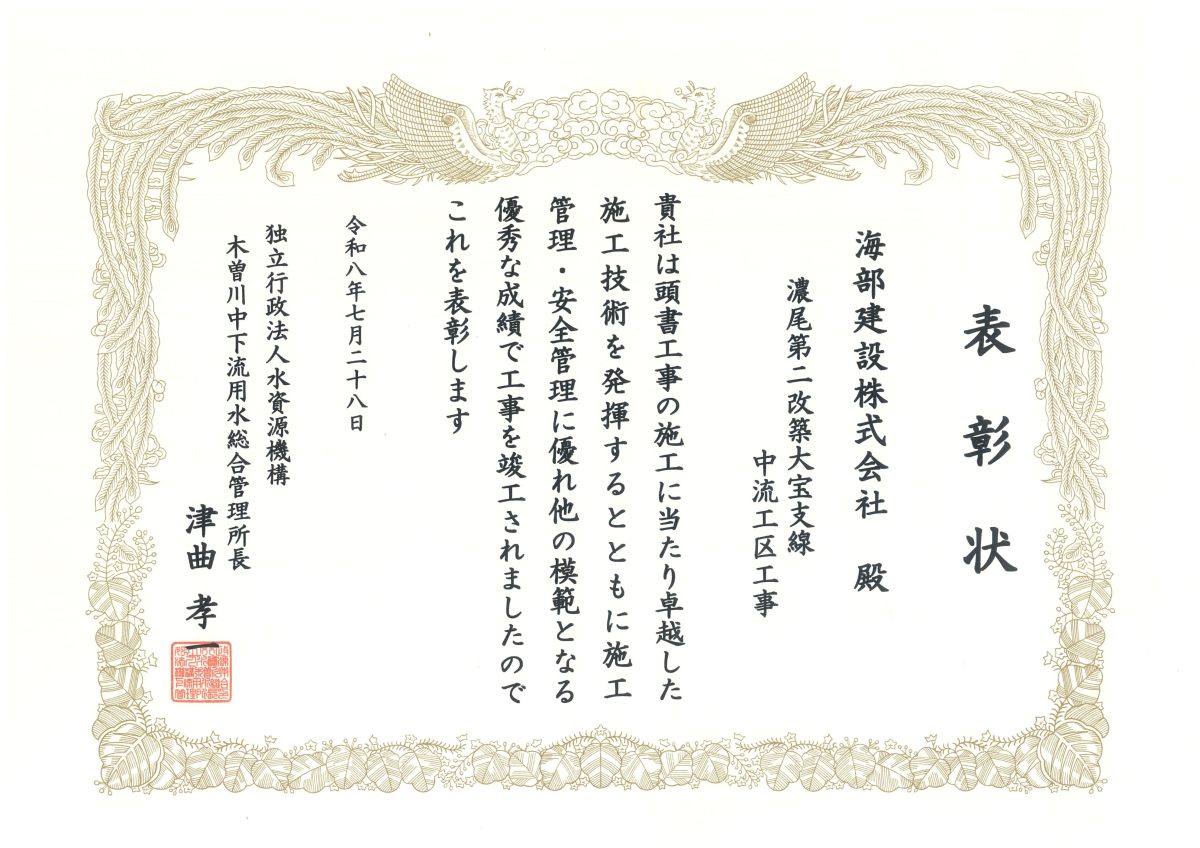 表彰状
海部建設株式会社 殿
濃尾第二改築大宝支線
中流工区工事
貴社は頭書工事の施工に当たり卓越した
施工技術を発揮するとともに施工
管理・安全管理に優れ他の模範となる
優秀な成績で工事を竣工されましたので
これを表彰します
令和八年七月二十八日
独立行政法人水資源機構
木曽川中下流用水総合管理所長
津曲 孝一